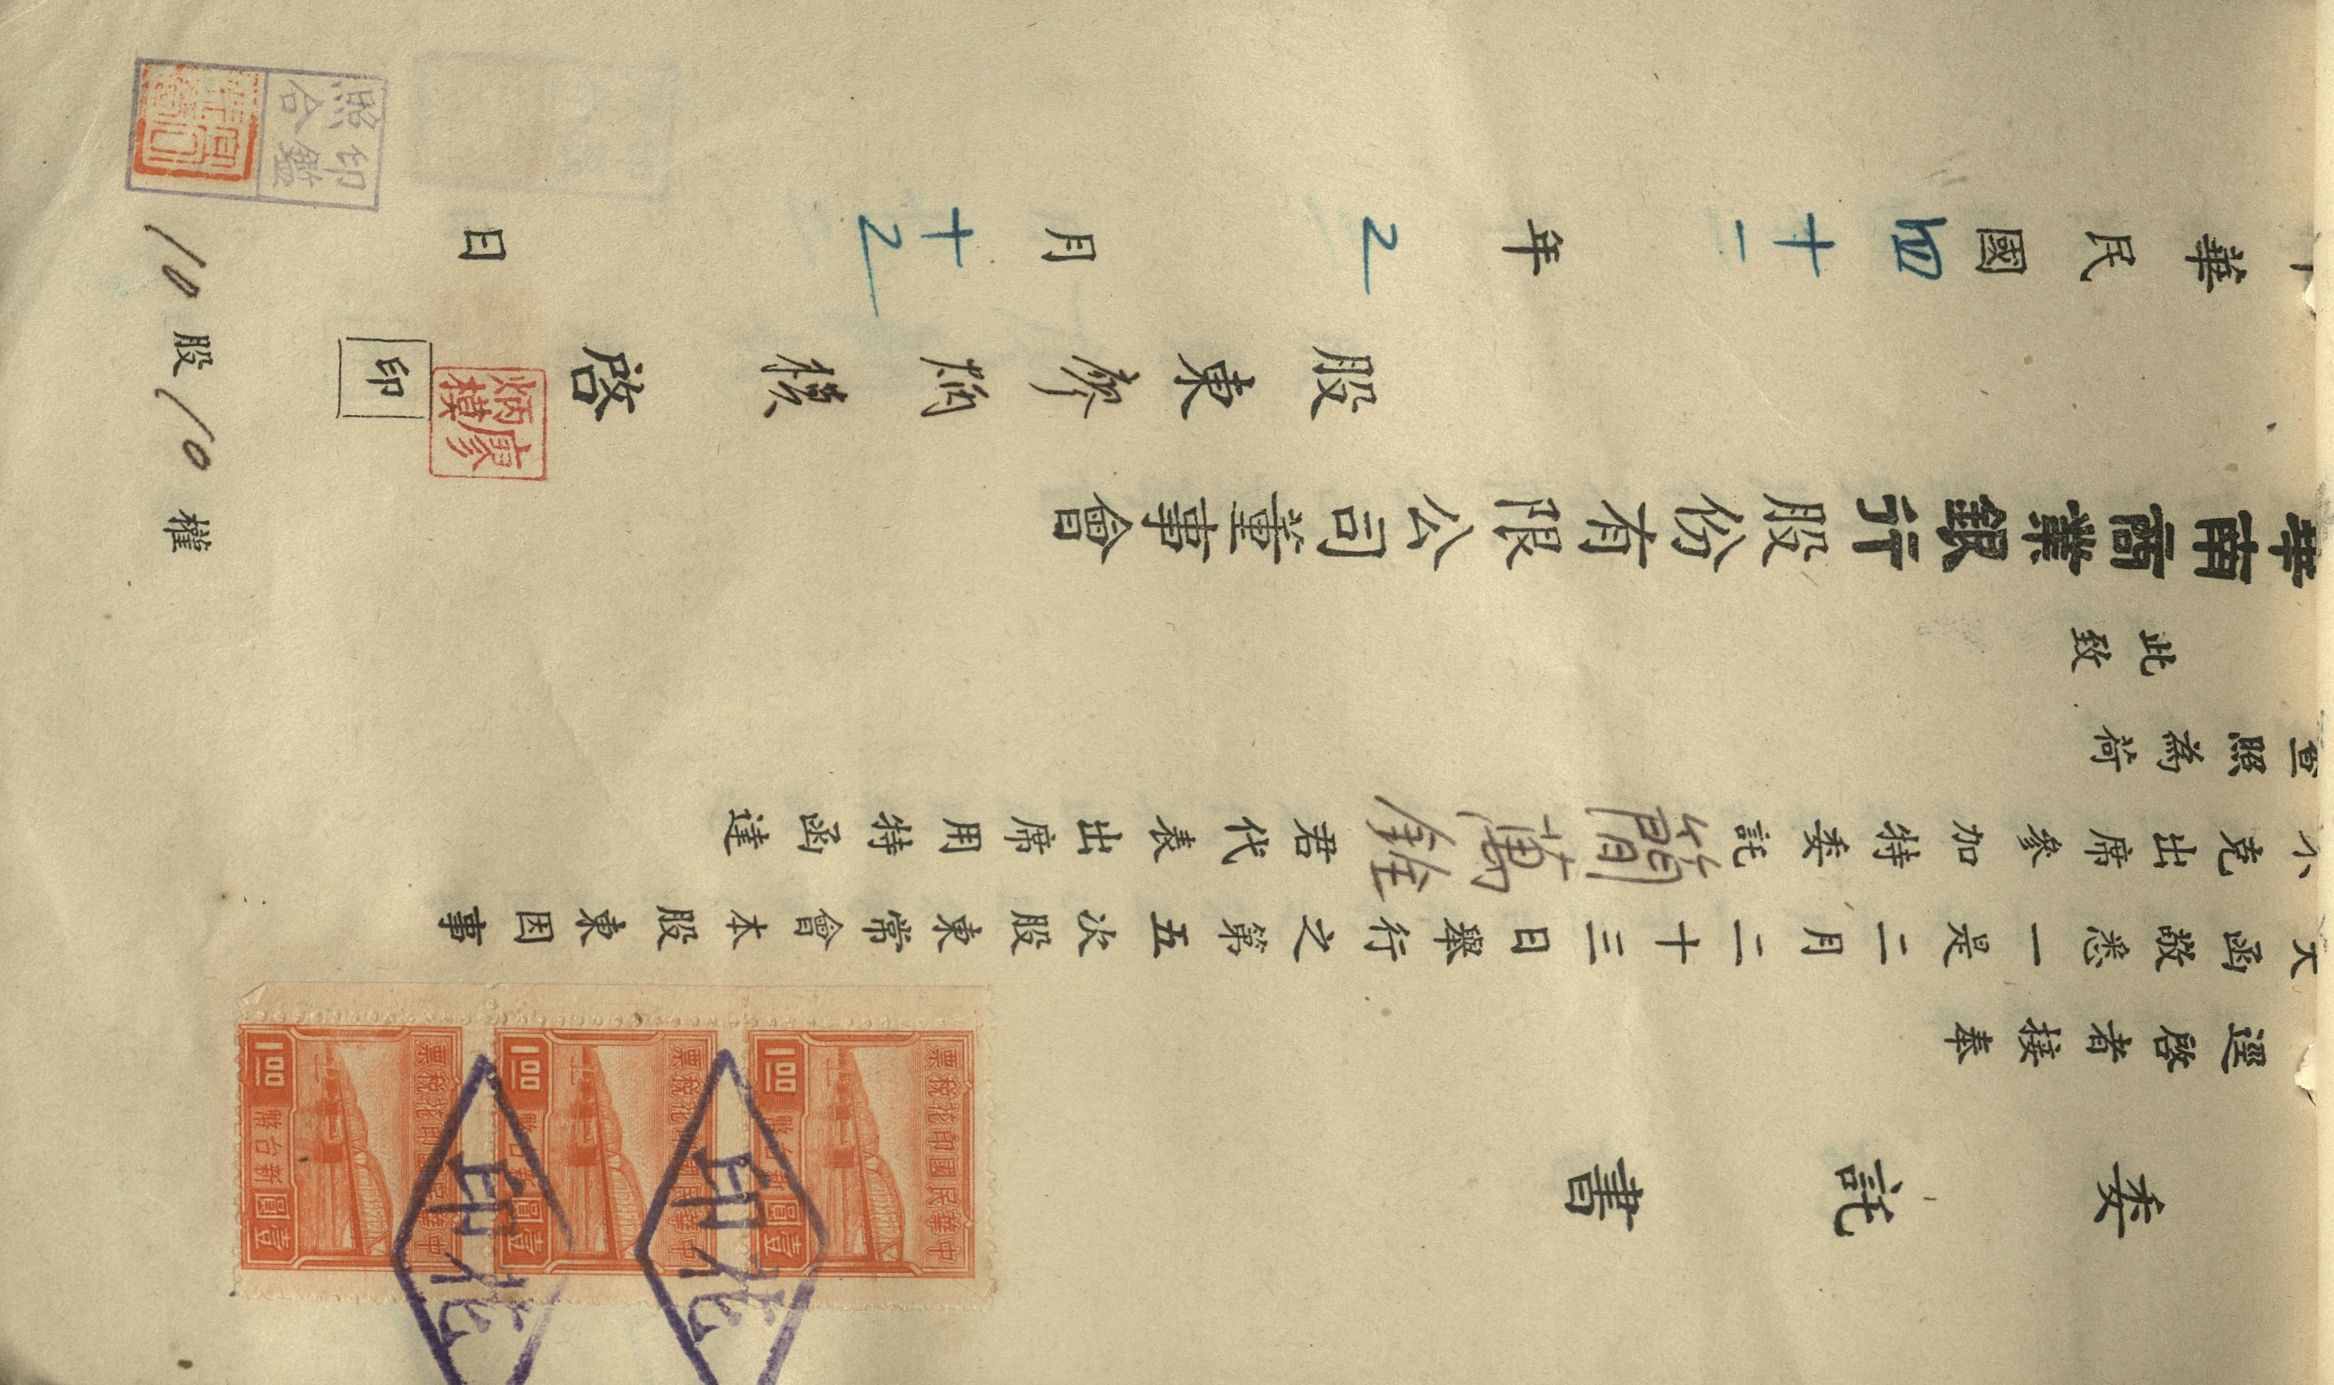 委託書
逕啓者接奉
大函敬悉一是二月二十三日舉行之第五次股東常會本股東因事
不克出席參加特委託簡萬銓君代表出席用特函達
查照為荷
此致
華南商業銀行股份有限公司董事會
股東廖炳模啓
印
廖炳模
華民國四十一年2月十2日
10股10權
印鑑照合
中華民國印花稅票
1.00
新台幣
壹圓
中華民國印花稅票
1.00
新台幣
壹圓
中華民國印花稅票
1.00
新台幣
壹圓
印花
印花